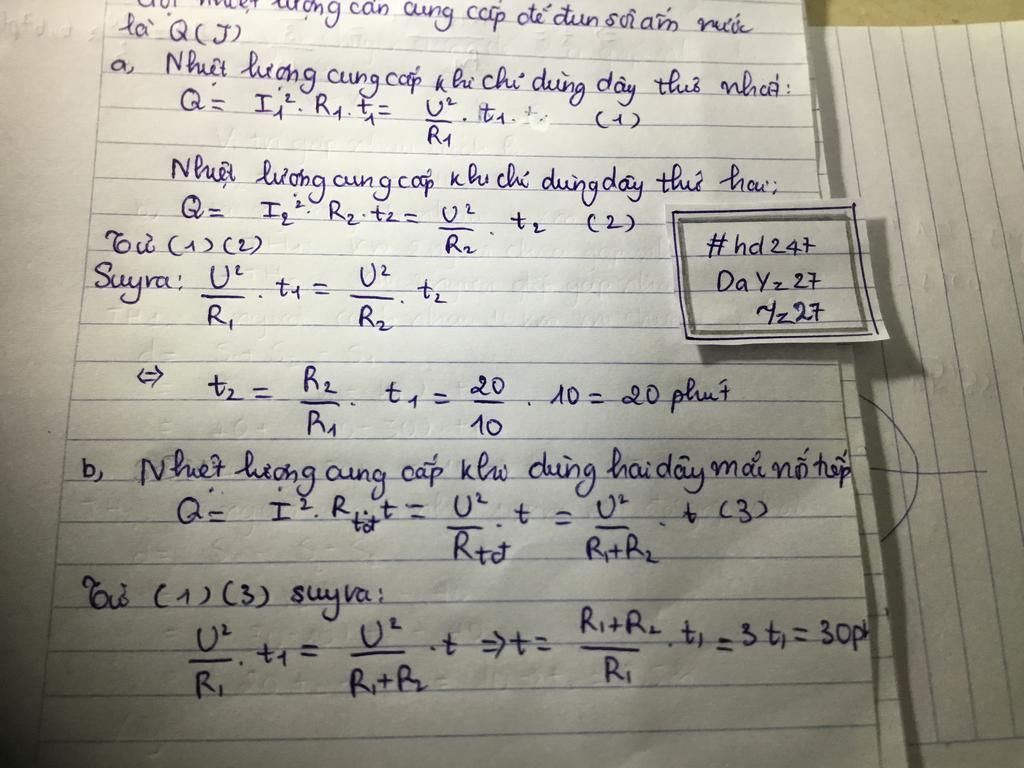 Gọi nhiệt lượng cần cung cấp để đun sôi ấm nước
là Q(J)
a, Nhiệt lượng cung cấp khi chỉ dùng dây thứ nhất:
Q = I₁². R₁. t₁ = U²/R₁ . t₁ . (1)
Nhiệt lượng cung cấp khi chỉ dùng dây thứ hai:
Q = I₂². R₂. t₂ = U²/R₂ . t₂ (2)
Từ (1) (2)
Suy ra: U²/R₁ . t₁ = U²/R₂ . t₂
⇔ t₂ = R₂/R₁ . t₁ = 20/10 . 10 = 20 phút
b, Nhiệt lượng cung cấp khi dùng hai dây mắc nối tiếp
Q = I². Rtđ t = U²/Rtđ . t = U²/R₁+R₂ . t (3)
Từ (1) (3) suy ra:
U²/R₁ . t₁ = U²/R₁+R₂ . t ⇒ t = R₁+R₂/R₁ . t₁ = 3t₁ = 30ph
#hd247
DaYz27
Yz27